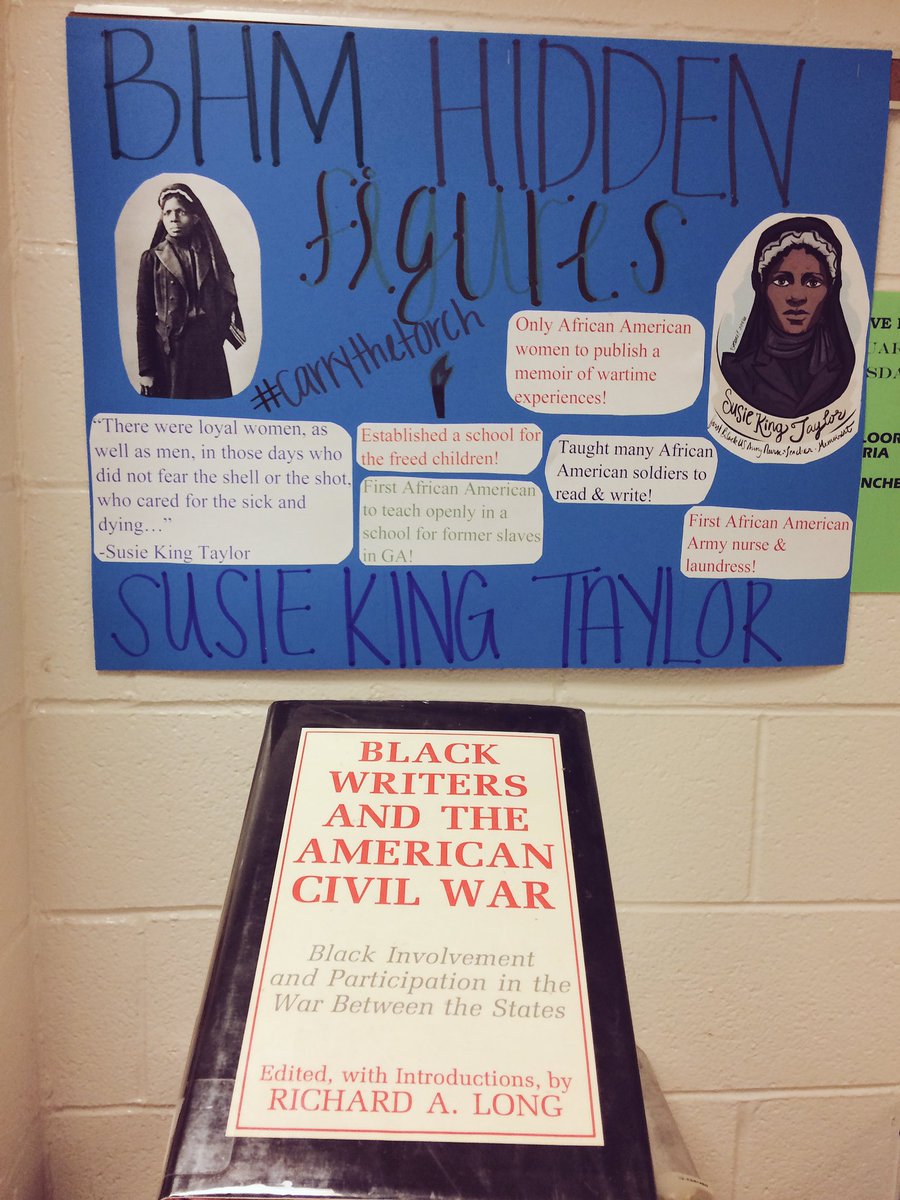 BHM HIDDEN
figures
#carrythetorch
Only African American
women to publish a
memoir of wartime
experiences!
Susie King Taylor
First Black US Army Nurse-Teacher-Memoirist
"There were loyal women, as
well as men, in those days who
did not fear the shell or the shot,
who cared for the sick and
dying…"
-Susie King Taylor
Established a school for
the freed children!
First African American
to teach openly in a
school for former slaves
in GA!
Taught many African
American soldiers to
read & write!
First African American
Army nurse &
laundress!
SUSIE KING TAYLOR
BLACK
WRITERS
AND THE
AMERICAN
CIVIL WAR
Black Involvement
and Participation in the
War Between the States
Edited, with Introductions, by
RICHARD A. LONG